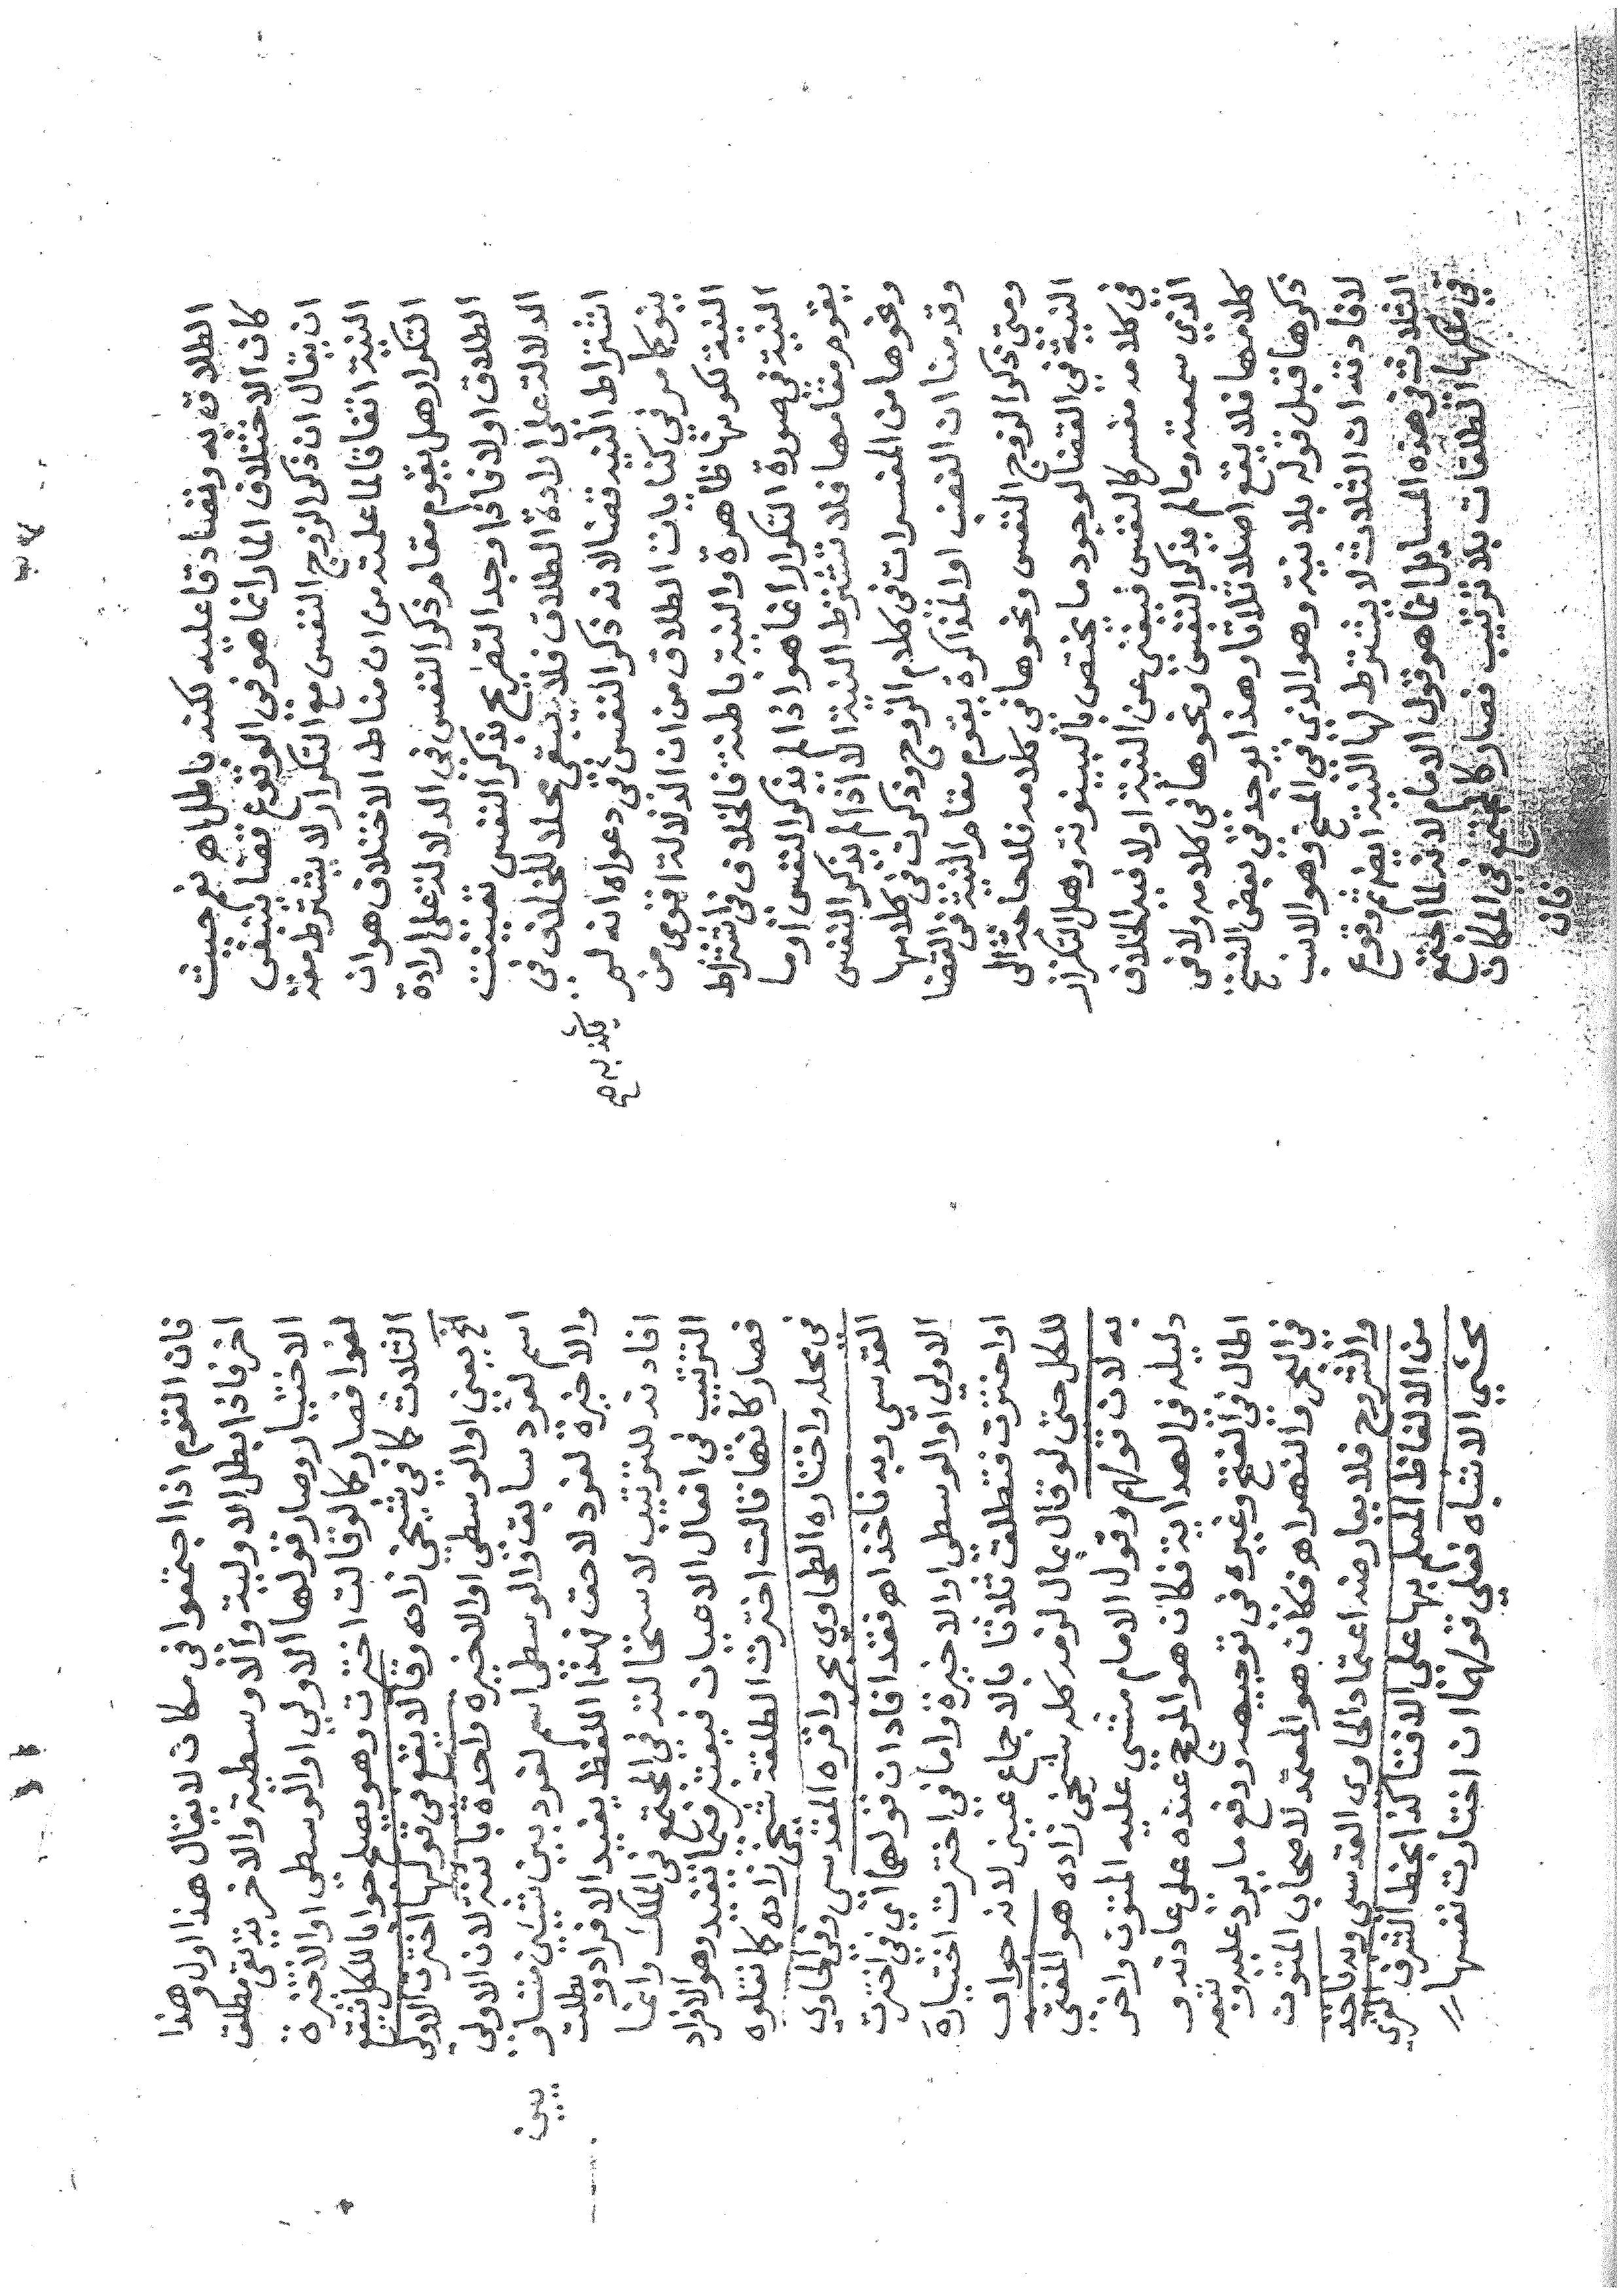 الطلاق به وتصادقا عليه لكنه باطل اهـ نعم حيث
كان الاختلاف المار انما هو في الوقوع قضا ينبغي
ان يقال ان ذكر الزوج النفس مع التكرار لا يشترط معه
النية اتفاقا لما علمته من ان مناط الاختلاف هو ان
التكرار هل يقوم مقام ذكر النفس في الدلالة على ارادة
الطلاق اولا فاذا وجد التصريح بذكر النفس تعينت
الدلالة على ارادة الطلاق فلا يبقى محلا للخلاف في
اشتراط النية قضا لانه ذكر النفس في دعواه انه لم
يكذبه صح
ينو كما مر في كنايات الطلاق من ان الدلالة اقوى من
النية لكونها ظاهرة والنية باطنة فالخلاف في اشتراط
النية في صورة التكرار انما هو اذا لم يذكر النفس او ما
يقوم مقامها فلا تشترط النية الا اذا لم يذكر النفس
ونحوها من المفسرات في كلام الزوج وذكرت في كلامها
وقدمنا ان الغضب او المذاكرة يقوم مقام النية في القضا
ومتى ذكر الزوج النفس ونحوها في كلامه فلا حاجة الى
النية في القضا لوجود ما يختص بالبينونة وهل التكرار
في كلامه مفسر كالنفس فيغني عن النية اولا فيه الخلاف
الذي سمعته وما لم يذكر النفس ونحوها في كلامه ولا في
كلامها فلا يقع اصلا ثلاثا وهذا يوجد في بعض النسخ
ذكرها قبل قوله بلا نية وهو الذي في المنح وهو الانسب
لافادته ان الثلاث لا يشترط لها النية ايضا ثم وقوع
الثلاث في هذه المسايل انما هو قول الامام لانه لما اجتمع
في ملكها الطلقات بلا ترتيب فصار كالمجتمع في المكان
فان
فان القوم اذا اجتمعوا في مكان لا يقال هذا اول وهذا
اخر فاذا بطل الاولية والاوسطية والاخرية بقي مطلق
الاختيار وصار قولها الاولى او الوسطى او الاخيرة
لغوا فصار كما لو قالت اخترت وهو يصلح جوابا للكل فيقع
الثلاث كما في شيخي زاده وقالا يقع في قولها اخترت الاولى
الخ يعني او الوسطى او الاخيرة واحدة باينة لان الاولى
اسم لفرد سابق والوسطى اسم لفرد بين شيئين متساو
يين
والاخيرة لفرد لاحق فهذا اللفظ يفيد الافراد وبطلت
افادته للترتيب لاستحالته في المجتمع في الملك وانما
الترتيب في افعال الاعيان فيعتبر فيما تفيده وهو الافراد
فصار كانها قالت اخترت الطلقة شيخي زاده كما نقلوه
في محله واختاره الطحاوي بحر واقره المقدسي وفي الحاوي
القدسي وبه ناخذ اهـ فقد افاد ان قولهما اي في اخترت
الاولى او الوسطى او الاخيرة واما في اخترت اختيارة
او اخترت فتطلق ثلاثا بالاجماع عيني لانه جواب
للكل حتى لو قال بمال لزمه كله شيخي زاده هو المفتى
به لان قولهم وقول الامام مشى عليه المتون واخر
دليله في الهداية فكان هو المرجح عنده على عادته و
اطال في الفتح وغيره في توجيهه ودفع ما يرد عليه وتبعه
في البحر والنهر اهـ فكان هو المعتمد لاصحاب المتون
والشروح فلا يعارضه اعتماد الحاوي القدسي وبه ناخذ
من الالفاظ المعلم بها على الافتا كذا بخط الشرف الغزي
محشي الاشباه فعلى قولهما ان اختارت نفسها